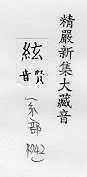 精嚴新集大藏音
絃
音賢
(糸部
1942)